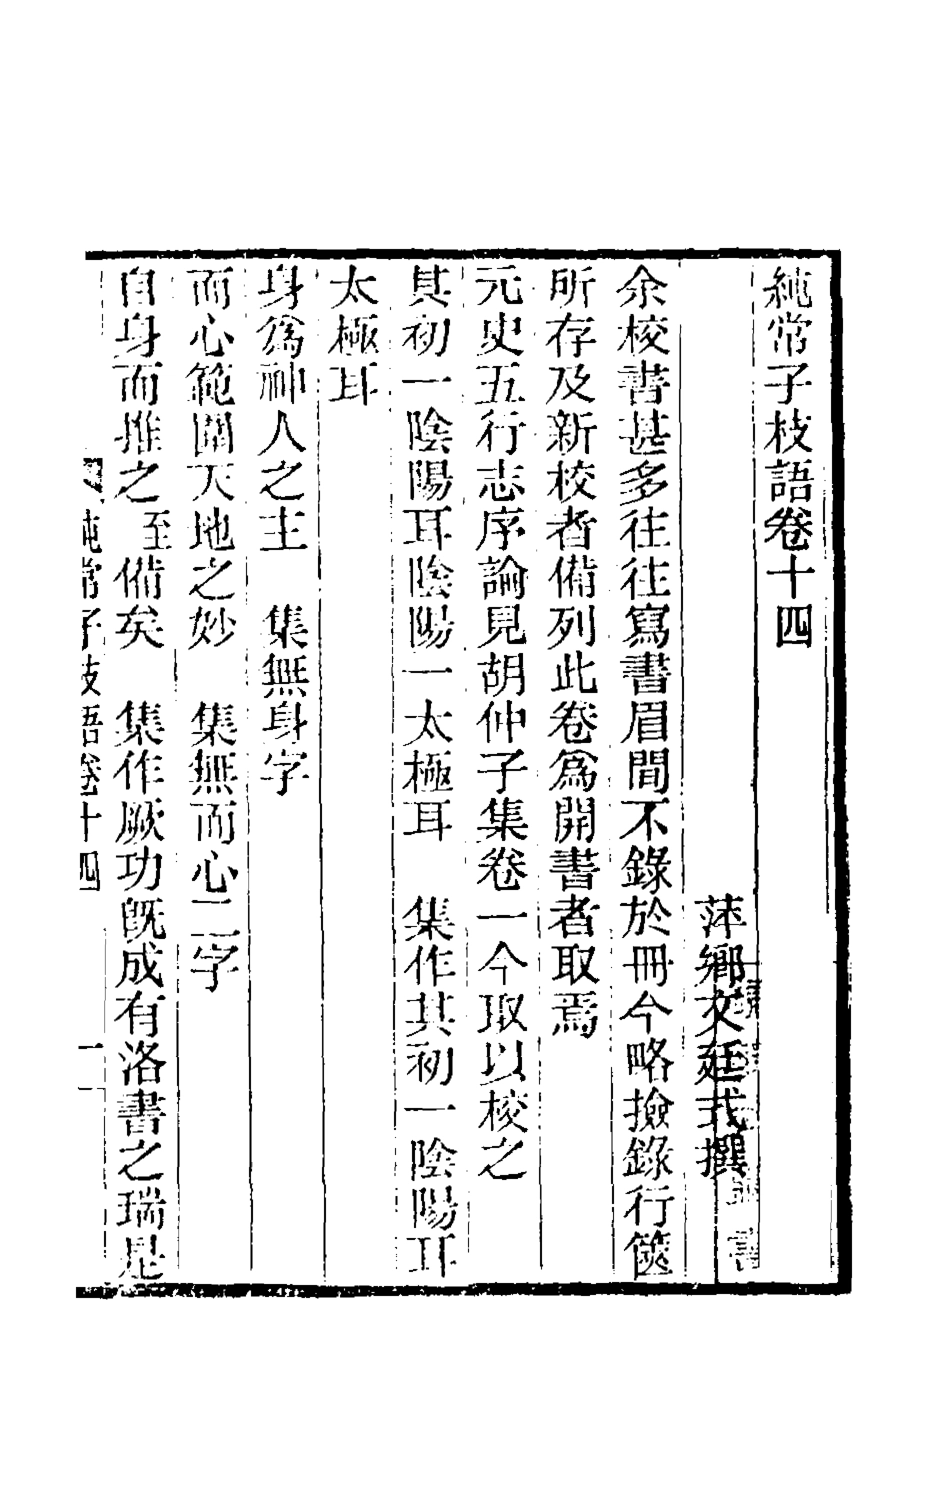 純常子枝語卷十四
萍鄉文廷式撰
余校書甚多往往寫書眉間不錄於冊今略撿錄行篋
所存及新校者備列此卷爲開書者取焉
元史五行志序論見胡仲子集卷一今取以校之
其初一陰陽耳陰陽一太極耳　集作其初一陰陽耳
太極耳
身爲神人之主　集無身字
而心範圍天地之妙　集無而心二字
自身而推之至備矣　集作厥功旣成有洛書之瑞是
純常子枝語卷十四　一